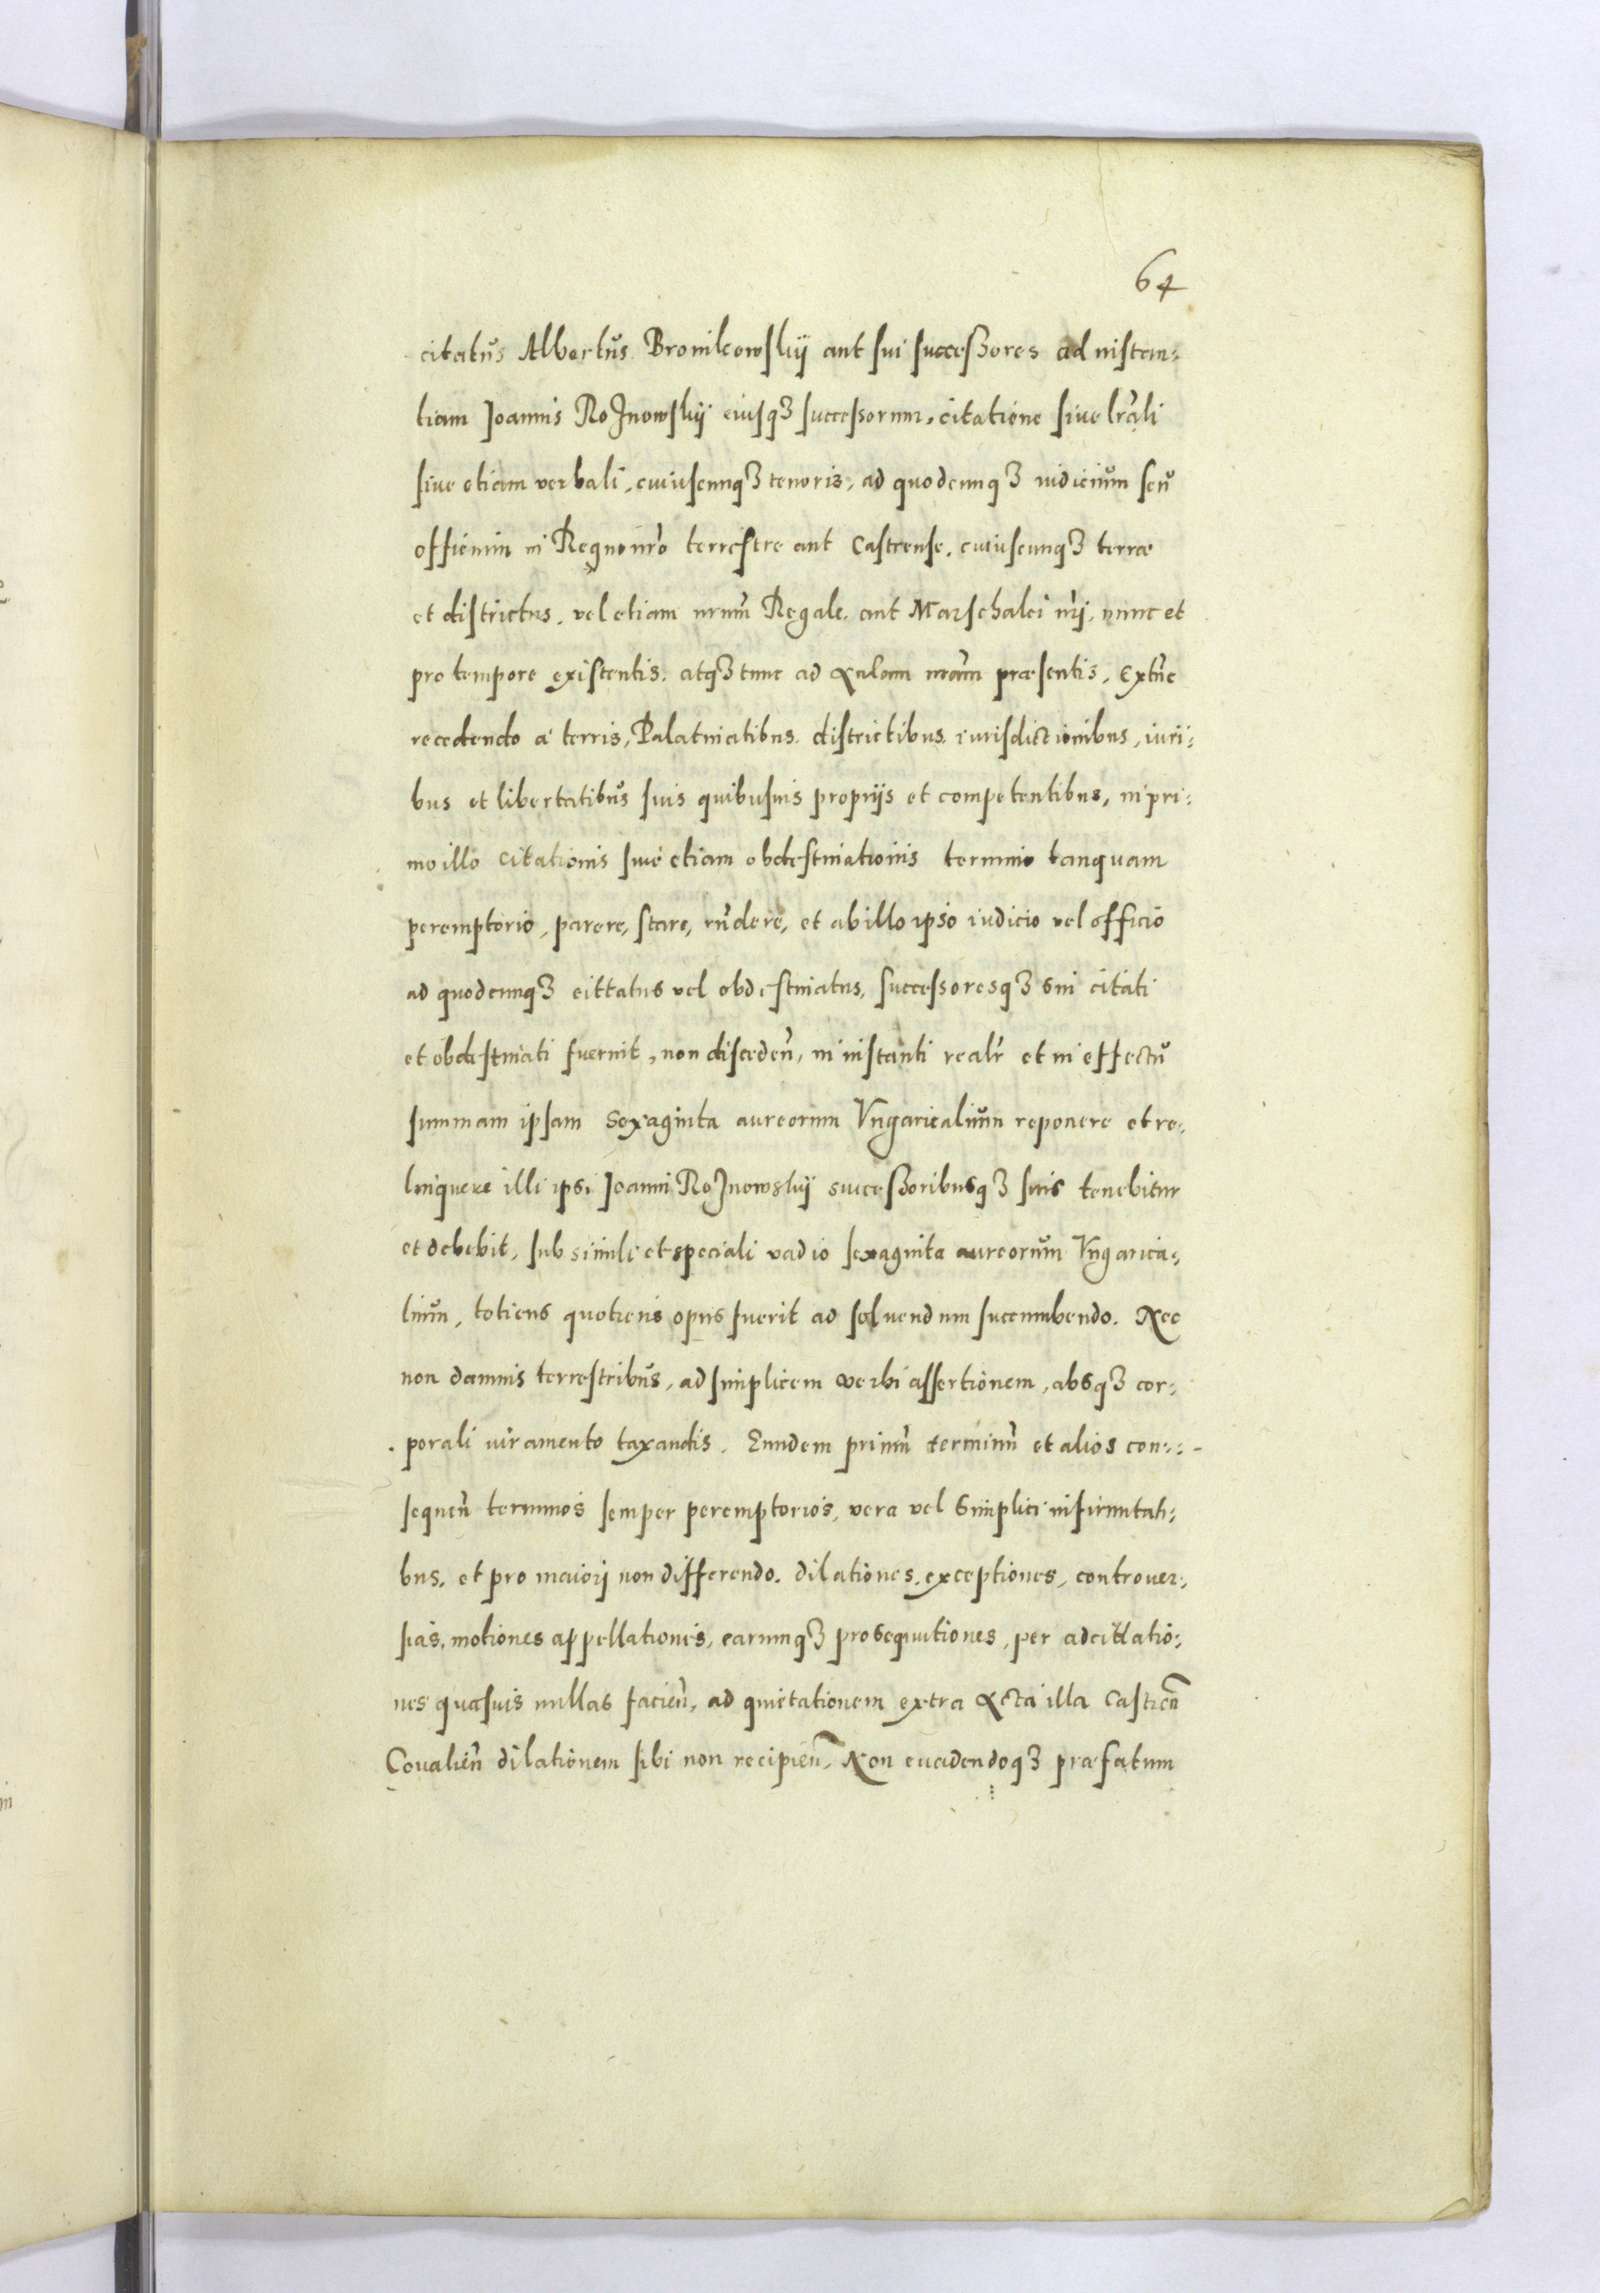 64
citatus Albertus Bronikowskij aut sui successores ad instan:
tiam Joannis Roznowskij eiusq3 successorum, citatione siue lrali
siue etiam verbali, cuiuscunq3 tenoris, ad quodcunq3 iudicium seu
officium in Regno nro terrestre aut Castrense, cuiuscunq3 terrae
et districtus, vel etiam nrum Regale, aut Marschalci nri, nunc et
pro tempore existentis, atq3 tunc ad Aulam nram praesentis, Extunc
recedendo a terris, Palatinatibus, districtibus, iurisdictionibus, iuri:
bus et libertatibus suis quibusuis proprijs et competentibus, in pri:
mo illo citationis siue etiam obdestinationis termino tanquam
peremptorio, parere, stare, rndere, et ab illo ipso iudicio vel officio
ad quodcunq3 cittatus vel obdestinatus, successoresq3 sui citati
et obdestinati fuerint, non disceden, in instanti realr et in effectu
summam ipsam Sexaginta aureorum Vngaricalium reponere et re:
linquere illi ipsi Joanni Roznowskij successoribusq3 suis tenebitur
et debebit, sub simili et speciali vadio sexaginta aureorum Vngarica:
lium, totiens quotiens opus fuerit ad soluendum succumbendo. Nec
non damnis terrestribus, ad simplicem verbi assertionem, absq3 cor:
porali iuramento taxandis. Eundem primum terminum et alios con:
sequen terminos semper peremptorios, vera vel simplici infirmitati:
bus, et pro maiori non differendo, dilationes, exceptiones, controuer:
sias, motiones appellationis, earumq3 prosequutiones, per adcittatio:
nes quasuis nullas facien, ad quietationem extra Acta illa Castren
Coualien dilationem sibi non recipien, Non euadendoq3 praefatum